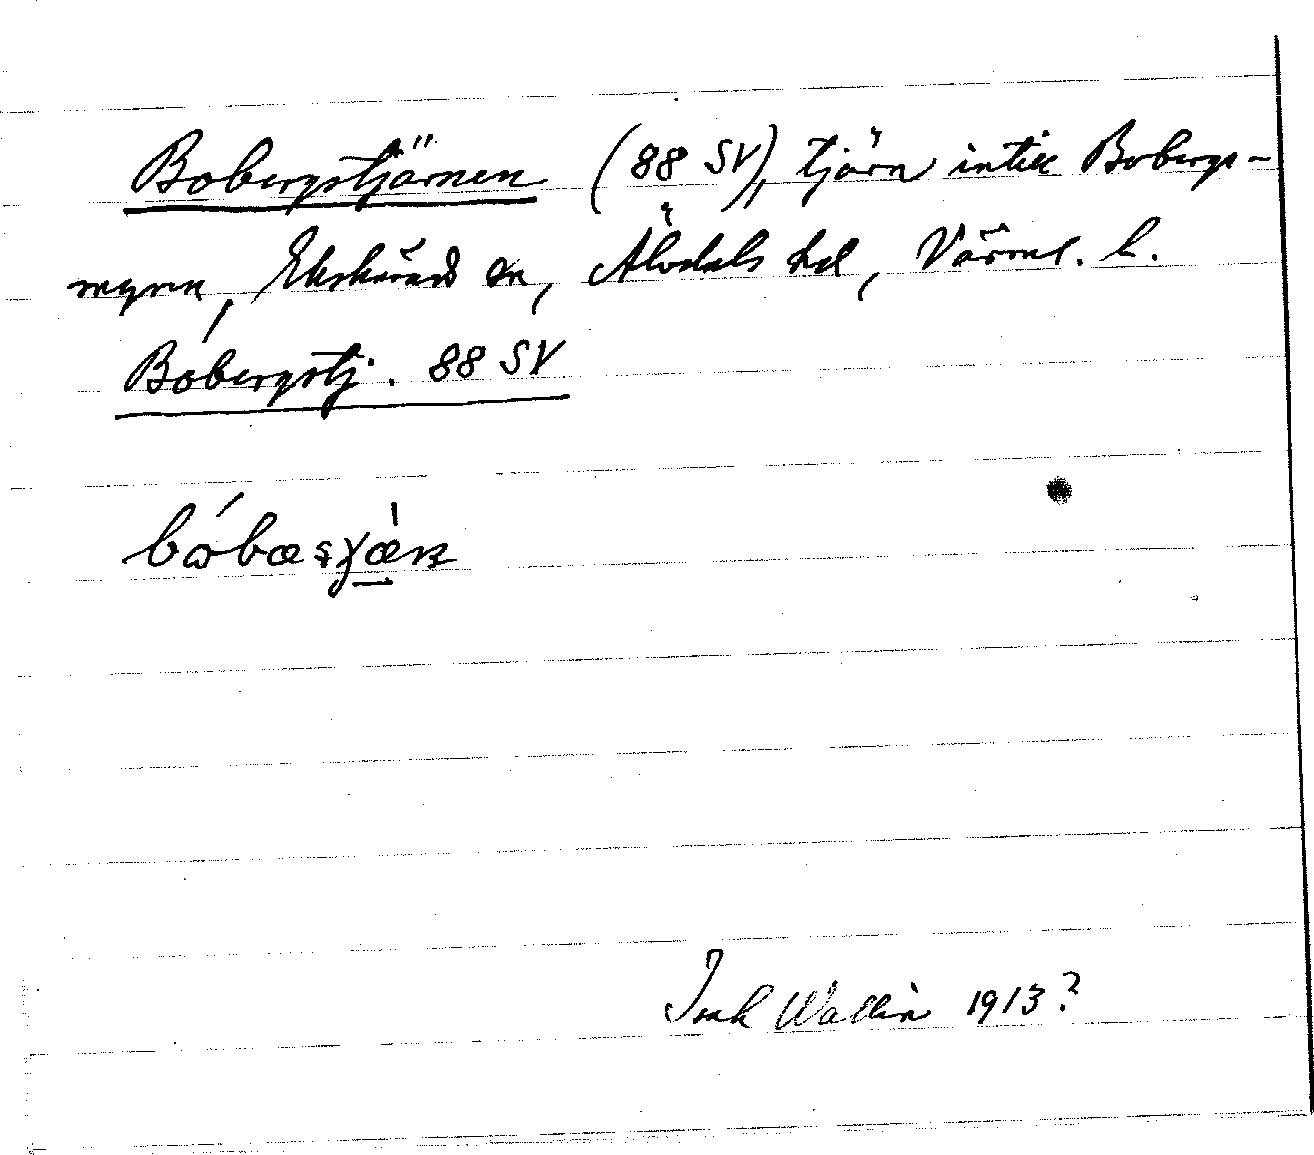 Bobergstjärnen (88 SV), tjärn intill Bobergs-
myren, Ekshärads sn, Älvdals hd, Värml. l.
Bobergstj. 88 SV
Wallin 1913?